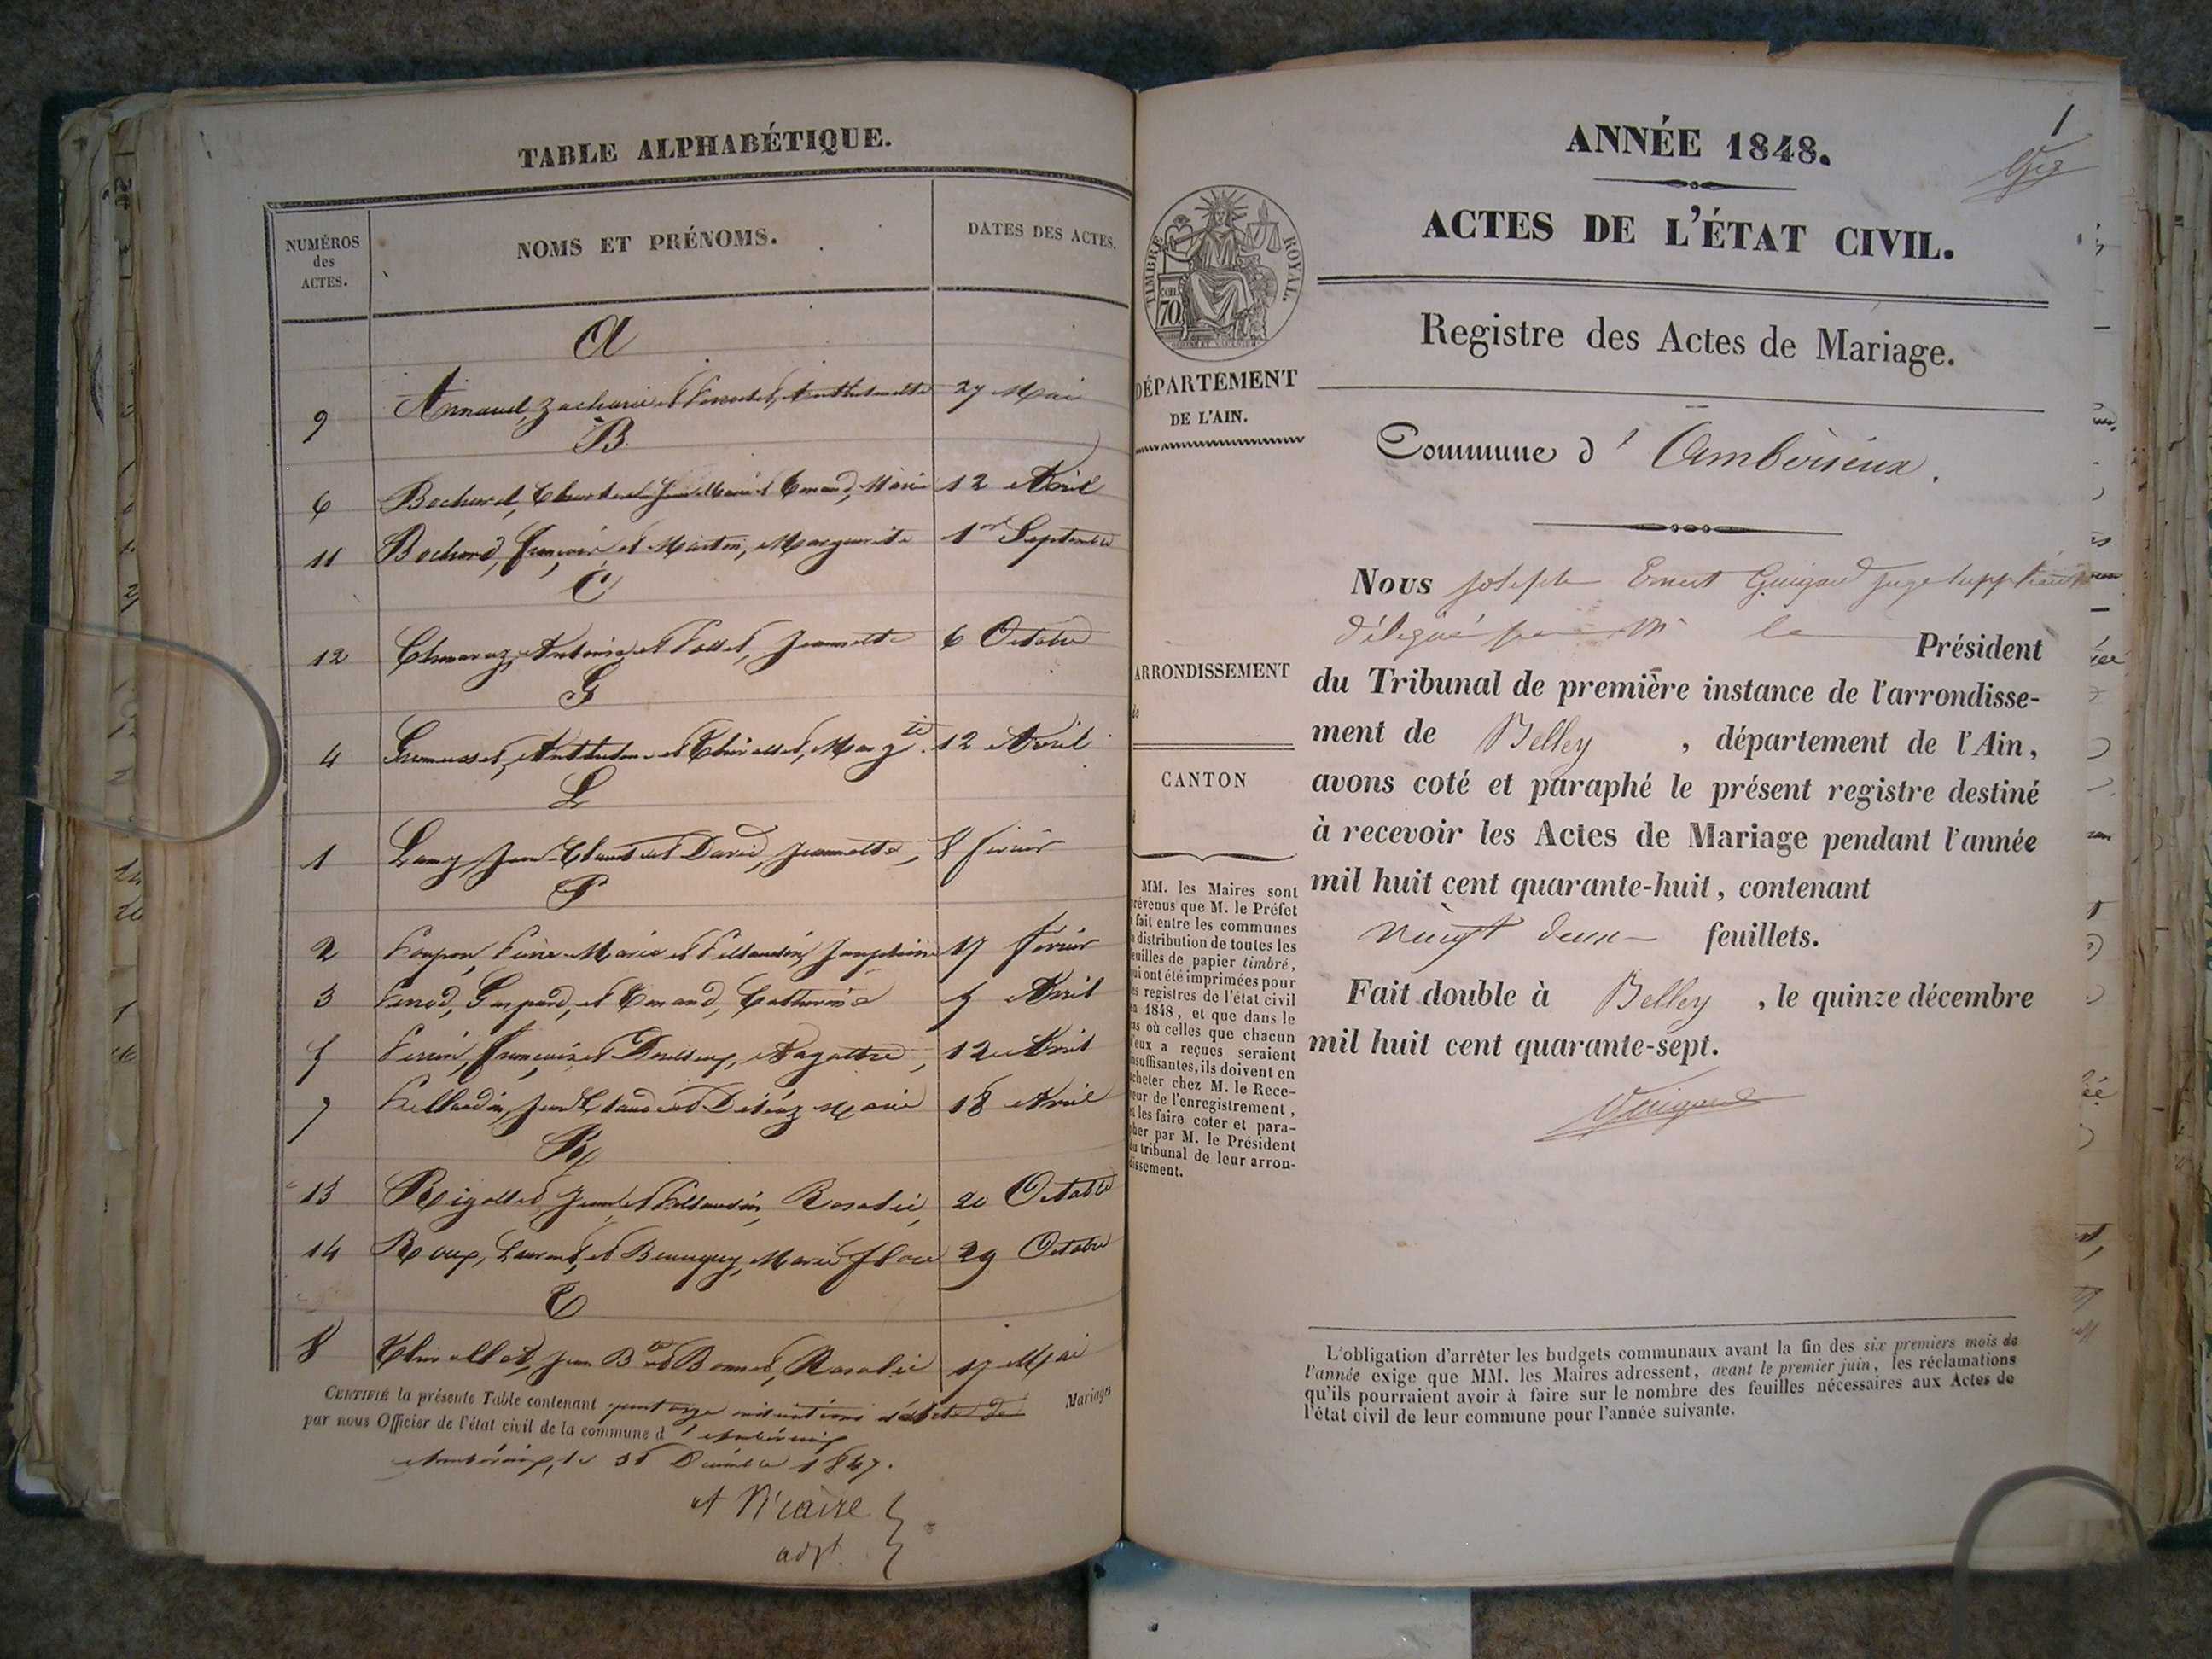 TABLE ALPHABÉTIQUE.
NUMÉROS
des
ACTES.
NOMS ET PRÉNOMS.
DATES DES ACTES.
A
9 Arnaud, Zacharie et 27 Mai
B
6 Bochard, et Marie 12 Avril
11 Bochard, françois et Martin, Marguerite 1er Septembre
C
12 Antoine et Jeannette 6 Octobre
G
4 Anthelme et Thivollet, Margte 12 Avril
L
1 Lamy, Jean Claude et David, Jeannette, 8 février
P
2 Marie et Pellaudin, Josephine 17 février
3 Gaspard, et Catherine Avril
françois et Agathe, 12 Avril
7 Pellaudin, Jean Claude et Marie 18 Avril
R
13 Rigollet Jean et Pellaudin, Rosalie, 20 Octobre
14 Roux, Laurent, et Marie 29 Octobre
T
8 Thivollet, Jean Bte et Bonnet, Rosalie 17 Mai
CERTIFIÉ la présente Table contenant quatorze Mariages
par nous Officier de l'état civil de la commune d'
le 31 Décembre 1847.
Nicaise
adjt.
1
ANNÉE 1848.
ACTES DE L'ÉTAT CIVIL.
TIMBRE ROYAL.
70
DÉPARTEMENT
DE L'AIN.
Registre des Actes de Mariage.
Commune d' Ambérieux.
ARRONDISSEMENT
de
CANTON
d
Nous Joseph Ernest Guigard Juge suppléant
délégué par Mr le Président
du Tribunal de première instance de l'arrondisse-
ment de Belley, département de l'Ain,
avons coté et paraphé le présent registre destiné
à recevoir les Actes de Mariage pendant l'année
mil huit cent quarante-huit, contenant
vingt deux feuillets.
Fait double à Belley, le quinze décembre
mil huit cent quarante-sept.
Guigard
MM. les Maires sont
prévenus que M. le Préfet
a fait entre les communes
la distribution de toutes les
feuilles de papier timbré,
qui ont été imprimées pour
les registres de l'état civil
en 1848, et que dans le
cas où celles que chacun
d'eux a reçues seraient
insuffisantes, ils doivent en
acheter chez M. le Rece-
veur de l'enregistrement,
et les faire coter et para-
pher par M. le Président
du tribunal de leur arron-
dissement.
L'obligation d'arrêter les budgets communaux avant la fin des six premiers mois de
l'année exige que MM. les Maires adressent, avant le premier juin, les réclamations
qu'ils pourraient avoir à faire sur le nombre des feuilles nécessaires aux Actes de
l'état civil de leur commune pour l'année suivante.